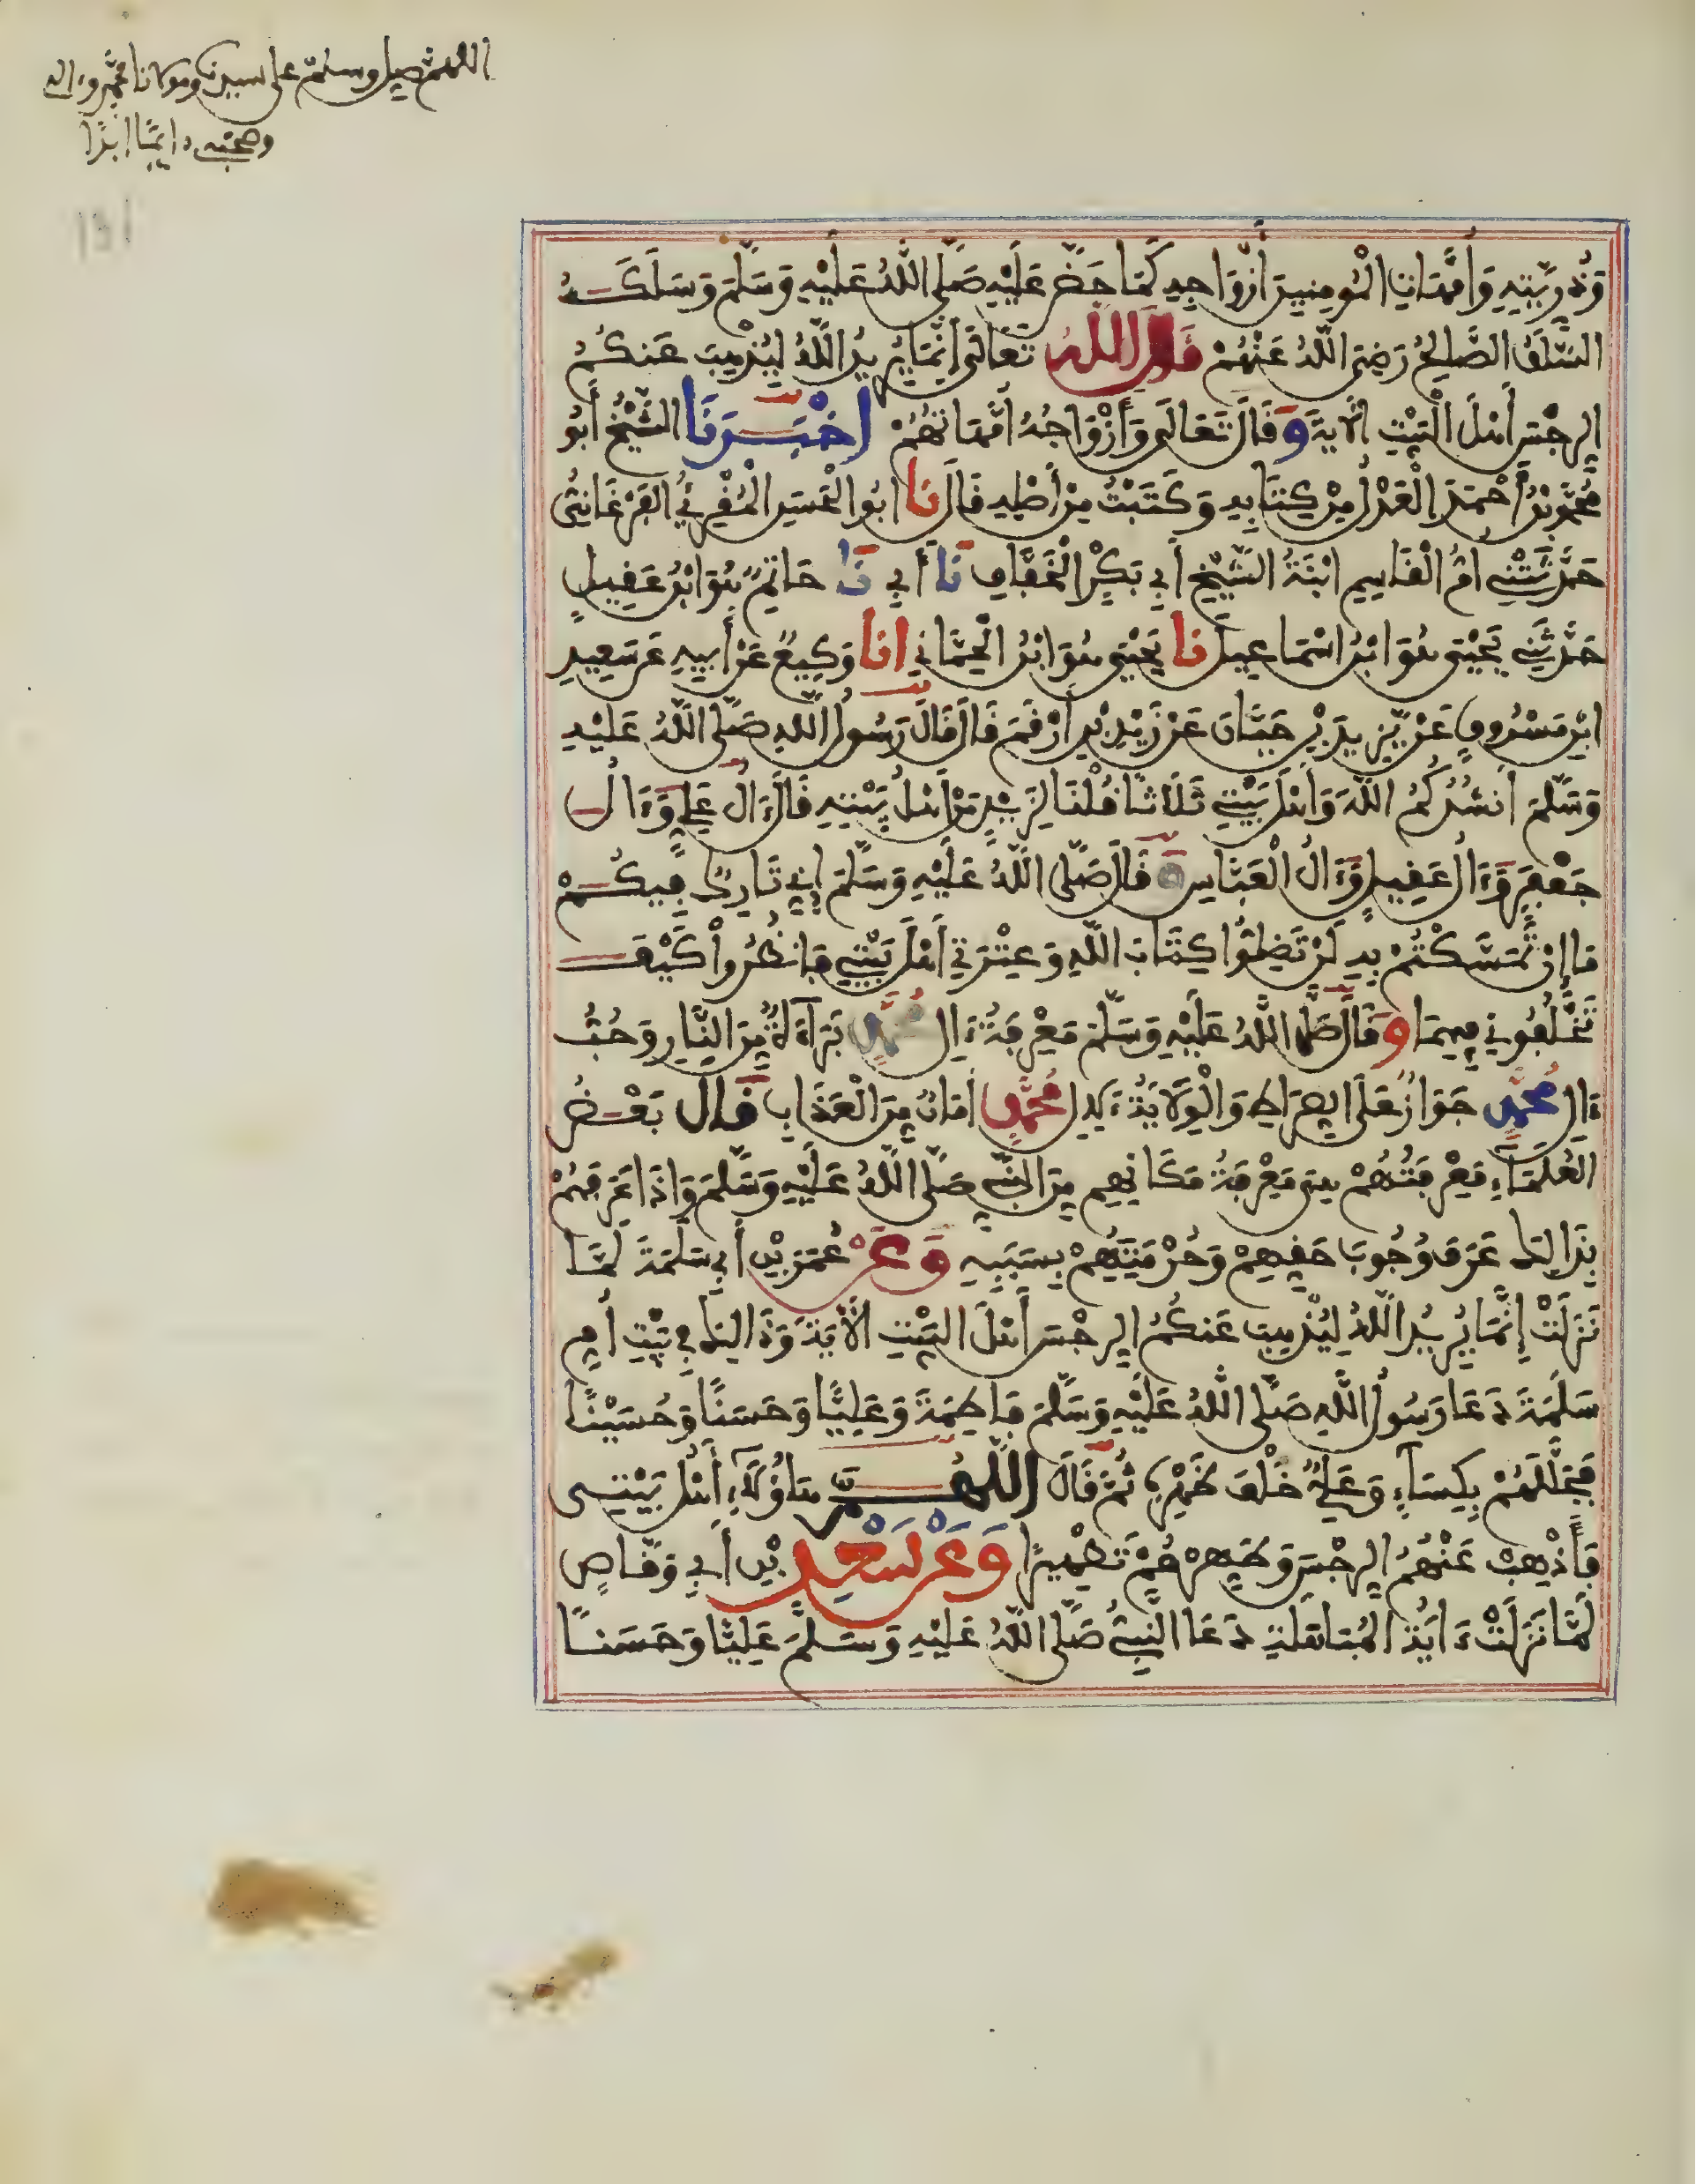 اللهم صل وسلم على سيدنا ومولانا محمد وءاله
وصحبه دايما ابدا
وَذُرِّيَّتِهِ وَأُمَّهَاتِ الْمُومِنِينَ أَزْوَاجِهِ كَمَا حَضَّ عَلَيْهِ صَلَّى اللَّهُ عَلَيْهِ وَسَلَّمَ وَسَلَكَهُ
السَّلَفُ الصَّالِحُ رَضِيَ اللَّهُ عَنْهُمْ قَالَ اللَّهُ تَعَالَى إِنَّمَا يُرِيدُ اللَّهُ لِيُذْهِبَ عَنكُمُ
الرِّجْسَ أَهْلَ الْبَيْتِ الْآيَةَ وَقَالَ تَعَالَى وَأَزْوَاجُهُ أُمَّهَاتُهُمْ أَخْبَرَنَا الشَّيْخُ أَبُو
مُحَمَّدِ بْنُ أَحْمَدَ الْعَدْلُ مِنْ كِتَابِهِ وَكَتَبْتُ مِنْ أَصْلِهِ قَالَ نَا ابُو الْحَسَنِ الْمُقْرِئُ الْفَرْغَانِيُّ
حَدَّثَتْنِي أُمُّ الْقَاسِمِ ابْنَةُ الشَّيْخِ أَبِي بَكْرٍ الْخَفَّافِ نَا أَبِي نَا حَاتِمٌ هُوَ ابْنُ عَقِيلٍ
حَدَّثَنِي يَحْيَى هُوَ ابْنُ اسْمَاعِيلَ نَا يَحْيَى هُوَ ابْنُ الْحِمَّانِي انَا وَكِيعٌ عَنْ أَبِيهِ عَن سَعِيدِ
ابْنِ مَسْرُوقٍ عَنْ يَزِيدَ بْنِ حَيَّانَ عَنْ زَيْدِ بْنِ أَرْقَمَ قَالَ قَالَ رَسُولُ اللَّهِ صَلَّى اللَّهُ عَلَيْهِ
وَسَلَّمَ أَنشُدُكُمُ اللَّهَ وَأَهْلَ بَيْتِي ثَلَاثًا قُلْنَا لِزَيْدٍ مَنْ أَهْلُ بَيْتِهِ قَالَ ءَالُ عَلِيٍّ وَءَالُ
جَعْفَرٍ وَءَالُ عَقِيلٍ وَءَالُ الْعَبَّاسِ وَقَالَ صَلَّى اللَّهُ عَلَيْهِ وَسَلَّمَ إِنِّي تَارِكٌ فِيكُمْ
مَا إِنْ تَمَسَّكْتُمْ بِهِ لَنْ تَضِلُّوا كِتَابَ اللَّهِ وَعِتْرَتِي أَهْلَ بَيْتِي فَانظُرُوا كَيْفَ
تَخْلُفُونِي فِيهِمَا وَقَالَ صَلَّى اللَّهُ عَلَيْهِ وَسَلَّمَ مَعْرِفَةُ ءَالِ مُحَمَّدٍ بَرَآءَةٌ مِنَ النَّارِ وَحُبُّ
ءَالِ مُحَمَّدٍ جَوَازٌ عَلَى الصِّرَاطِ وَالْوَلَايَةُ لِءَالِ مُحَمَّدٍ أَمَانٌ مِنَ الْعَذَابِ قَالَ بَعْضُ
الْعُلَمَاءِ مَعْرِفَتُهُمْ هِيَ مَعْرِفَةُ مَكَانِهِم مِنَ النَّبِي صَلَّى اللَّهُ عَلَيْهِ وَسَلَّمَ وَإِذَا عَرَفَهُمْ
بِذَالِكَ عَرَفَ وُجُوبَ حَقِّهِمْ وَحُرْمَتِهِمْ بِسَبَبِهِ وَعَنْ عُمَرَ بْنِ أَبِي سَلَمَةَ لَمَّا
نَزَلَتْ إِنَّمَا يُرِيدُ اللَّهُ لِيُذْهِبَ عَنكُمُ الرِّجْسَ أَهْلَ الْبَيْتِ الْآيَةَ وَذَالِكَ فِي بَيْتِ أُمِّ
سَلَمَةَ دَعَا رَسُولُ اللَّهِ صَلَّى اللَّهُ عَلَيْهِ وَسَلَّمَ فَاطِمَةَ وَعَلِيًّا وَحَسَنًا وَحُسَيْنًا
فَجَلَّلَهُمْ بِكِسَاءٍ وَعَلِيٌّ خَلْفَ ظَهْرِهِ ثُمَّ قَالَ اللَّهُمَّ هَاؤُلَاءِ أَهْلُ بَيْتِي
فَأَذْهِبْ عَنْهُمُ الرِّجْسَ وَطَهِّرْهُمْ تَطْهِيرًا وَعَنْ سَعْدِ بْنِ أَبِي وَقَّاصٍ
لَمَّا نَزَلَتْ ءَايَةُ الْمُبَاهَلَةِ دَعَا النَّبِيُّ صَلَّى اللَّهُ عَلَيْهِ وَسَلَّمَ عَلِيًّا وَحَسَنًا